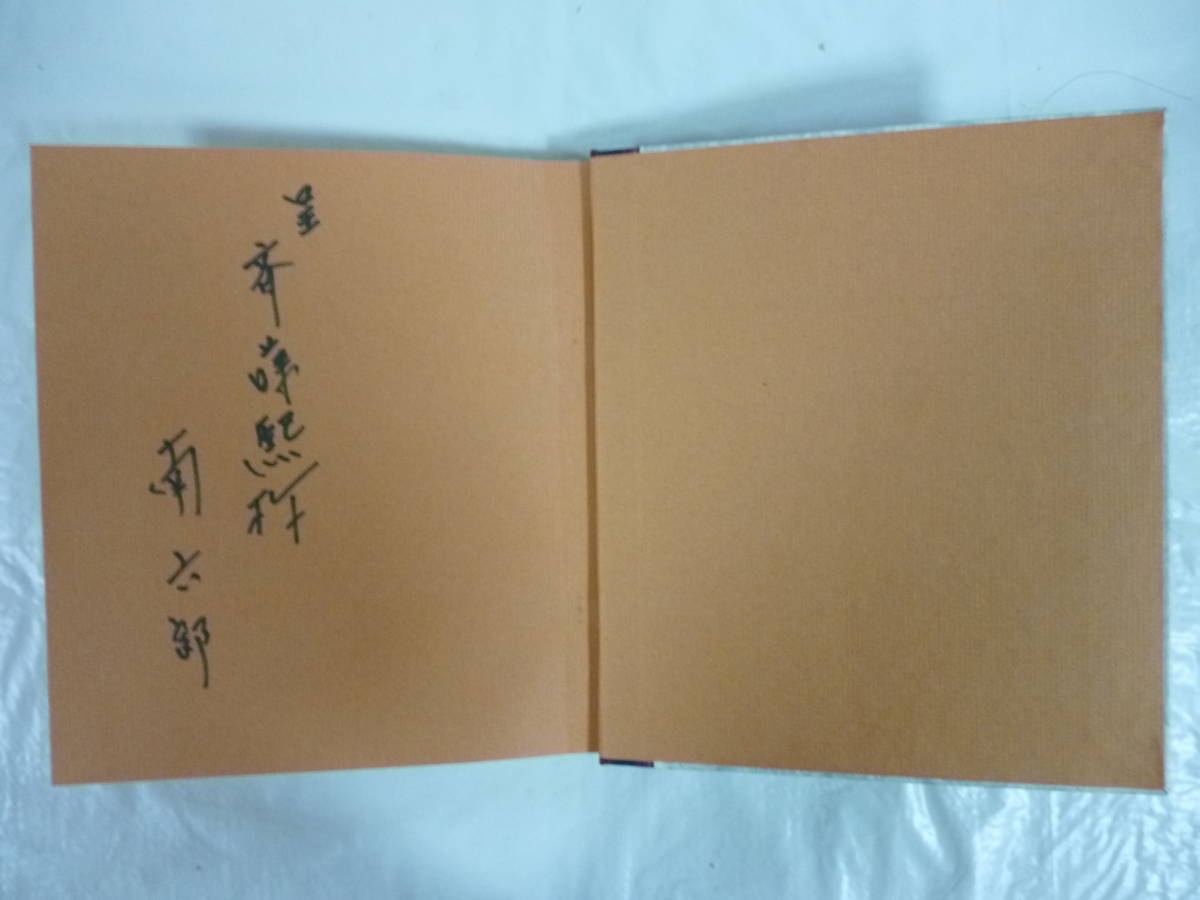 呈
斎藤熙様
南六郎